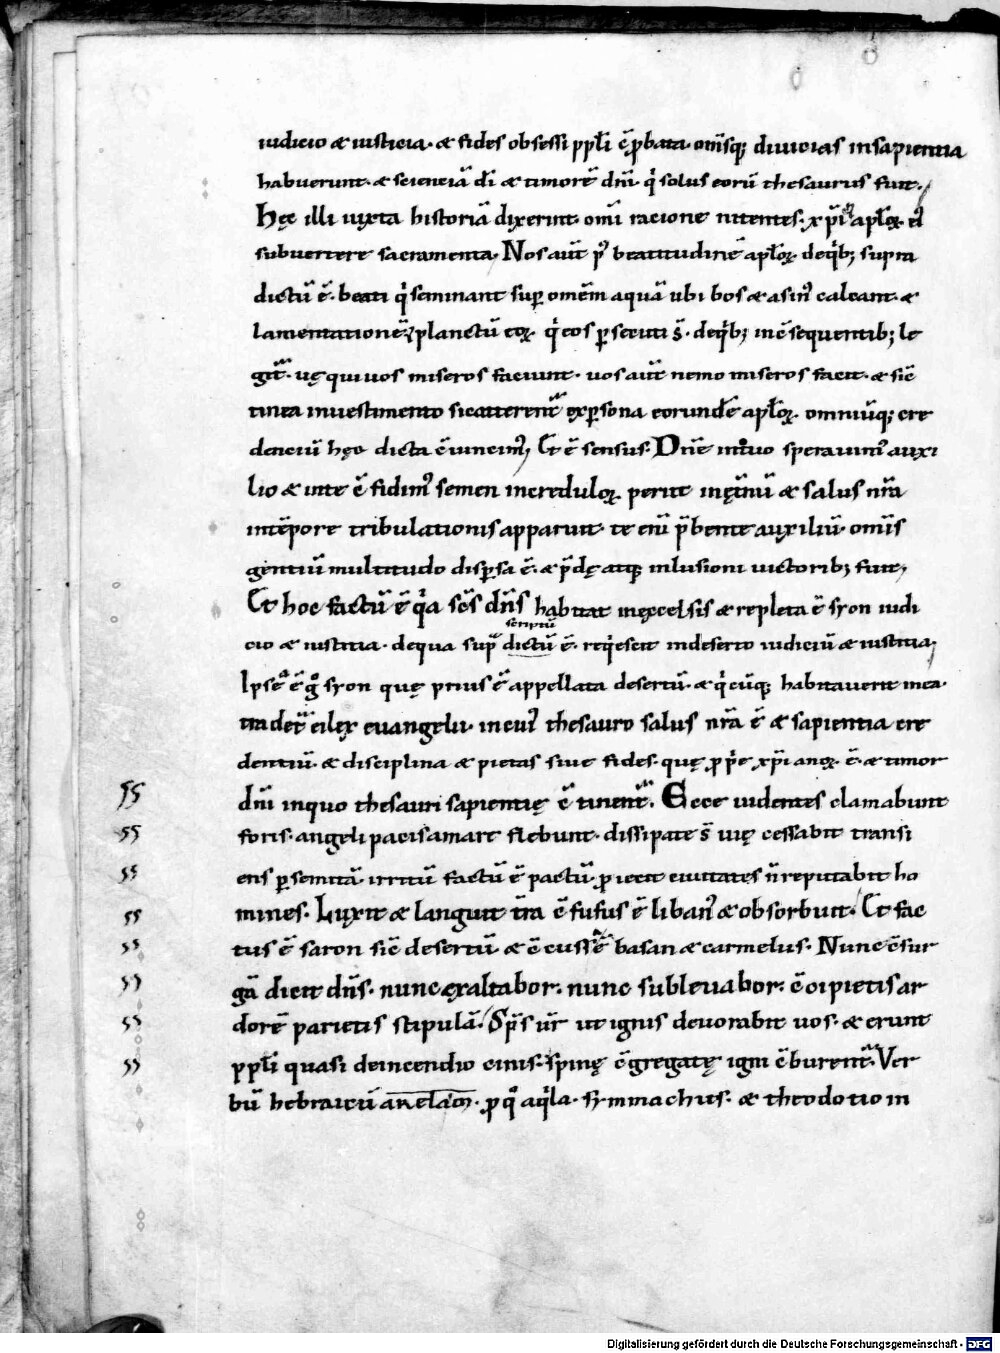 iudicio & iusticia· & fides obsessi ppłi c̄ p̄bata· om̄sq; diuicias insapientia
habuerunt· & scienciā dī & timorē dn̄i· q' solus eorū thesaurus fuit·
Hęc illi iuxta historiā dixerint· omī racione nitentes· xp̄i & apłoꝝ ei'
subuertere sacramenta· Nos aut̄ p' beatitudinē apłoꝝ· deq'b; supra
dictū ē· beati q' seminant sup̄ omēm aquā ubi bos & asin' calcant· &
lamentationē & planctū eoꝝ q' eos p̄secuti s̄· deq'b; inc̄sequentib; le
git̄· vę qui uos miseros faciunt· uos aut̄ nemo miseros facit· & sic̄
tinea inuestimento sicatterent̄ exp̄sona eorundē apłoꝝ· omniūq; cre
denciū hęc dicta c̄iuncim'; Et ē sensus· Dn̄e inte uo sperauim' auxi
lio & inte c̄fidim' semen increduloꝝ perit inęt̄nū & salus nr̄a
intēpore tribulationis apparuit· te enī p̄bente auxiliū· om̄is
gentiū multitudo disp̄sa ē· & p̄dę atq; inlusioni uictorib; fuit;
Et hoc factū ē q'a sc̄s dn̄s habitat inexcelsis & repleta ē syon iudi
scriptū
cio & iusticia· dequa sup̄ dictū ē· req'escit indeserto iudiciū & iusticia;
Ipse ē ḡ syon quę prius ē appellata desertū· & q'cūq; habitauerit inea·
tradet̄ ei lex euangelii· incui' thesauro salus nr̄a ē & sapientia cre
dentiū· & disciplina & pietas siue fides· quę prop'e xp̄ianoꝝ· ē· & timor
dn̄i inquo thesauri sapientię c̄tinent̄· Ecce uidentes clamabunt
foris· angeli pacis amare flebunt· dissipatę s̄ uię cessabit transi
ens p̄ semitā· irritū factū ē pactū· proiecit ciuitates n̄ reputabit ho
mines· Luxit & languit t̄ra c̄fusus ē liban' & obsorduit· Et fac
tus ē saron sic̄ desertū· & c̄cussē basan & carmelus· Nunc c̄sur
gā dicit dn̄s· nunc exaltabor· nunc subleuabor· c̄cipietis ar
dorē parietis stipulā· Sp̄s ur̄ ut ignis deuorabit uos· & erunt
ppłi quasi deincendio cinis· spinę c̄gregatę igni c̄burent̄· Ver
bū hebraicū arelam· p̄ q° aq'la· symmachus· & theodotio in
55
55
55
55
55
55
55
55
Digitalisierung gefördert durch die Deutsche Forschungsgemeinschaft - DFG